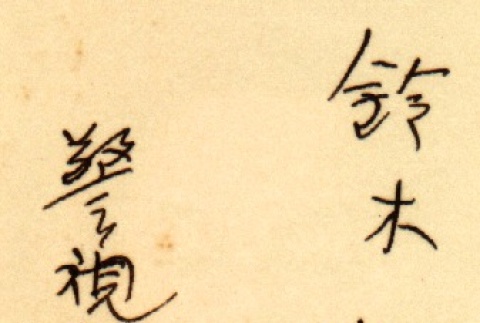 鈴木
警視